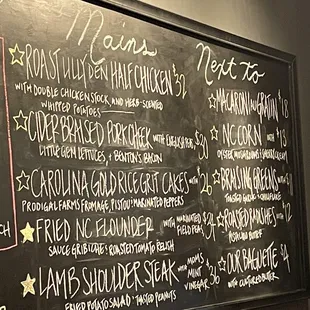 Mains
ROAST LILLY DEN HALF CHICKEN $32
WITH DOUBLE CHICKEN STOCK, AND HERB-SCENTED
WHIPPED POTATOES
CIDER BRAISED PORK CHEEK WITH ENGLISH PEAS $30
LITTLE GEM LETTUCES + BENTON'S BACON
CAROLINA GOLD RICE GRIT CAKES WITH $26
PRODIGAL FARMS FROMAGE, PISTOU + MARINATED PEPPERS
FRIED NC FLOUNDER WITH MARINATED FIELD PEAS
SAUCE GRIBICHE + ROASTED TOMATO RELISH
LAMB SHOULDER STEAK WITH MOM'S MINT VINEGAR $36
FRIED POTATO SALAD + TOASTED PEANUTS
Next to
MACARONI AU GRATIN $18
NC CORN WITH $13
OYSTER MUSHROOMS
BRAISING GREENS WITH
ROASTED RADISHES WITH
OUR BAGUETTE $4
WITH CULTURED BUTTER
CH